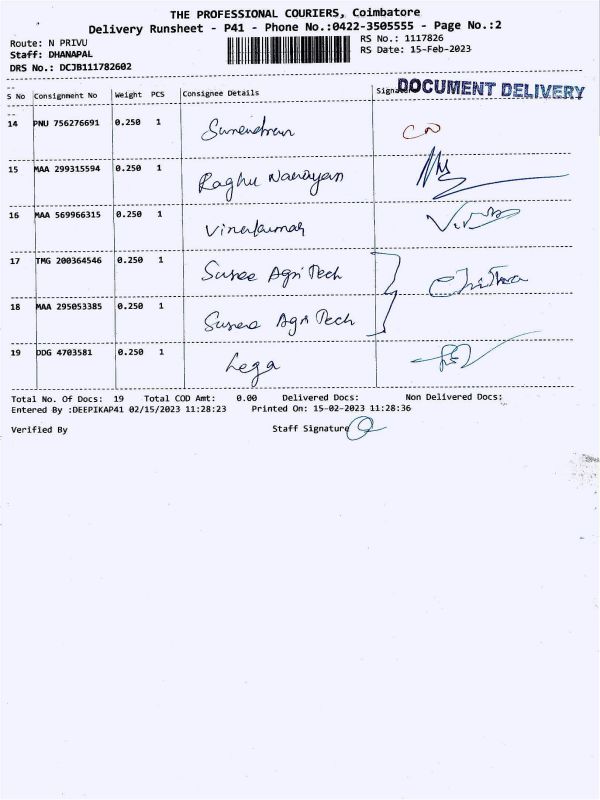 THE PROFESSIONAL COURIERS, Coimbatore
Delivery Runsheet - P41 - Phone No.:0422-3505555 - Page No.:2
Route: N PRIVU
RS No.: 1117826
Staff: DHANAPAL
RS Date: 15-Feb-2023
DRS No.: DCJB111782602
DOCUMENT DELIVERY
S No Consignment No Weight PCS Consignee Details
14 PNU 756276691 0.250 1 Surendran
15 MAA 299315594 0.250 1 Raghu Narayan
16 MAA 569966315 0.250 1 Vinerkumar
17 TMG 200364546 0.250 1 Suree Agri Tech
18 MAA 295053385 0.250 1 Suree Agri Tech
19 DDG 4703581 0.250 1 Lega
Total No. Of Docs: 19 Total COD Amt: 0.00 Delivered Docs: Non Delivered Docs:
Entered By :DEEPIKAP41 02/15/2023 11:28:23 Printed On: 15-02-2023 11:28:36
Verified By Staff Signature